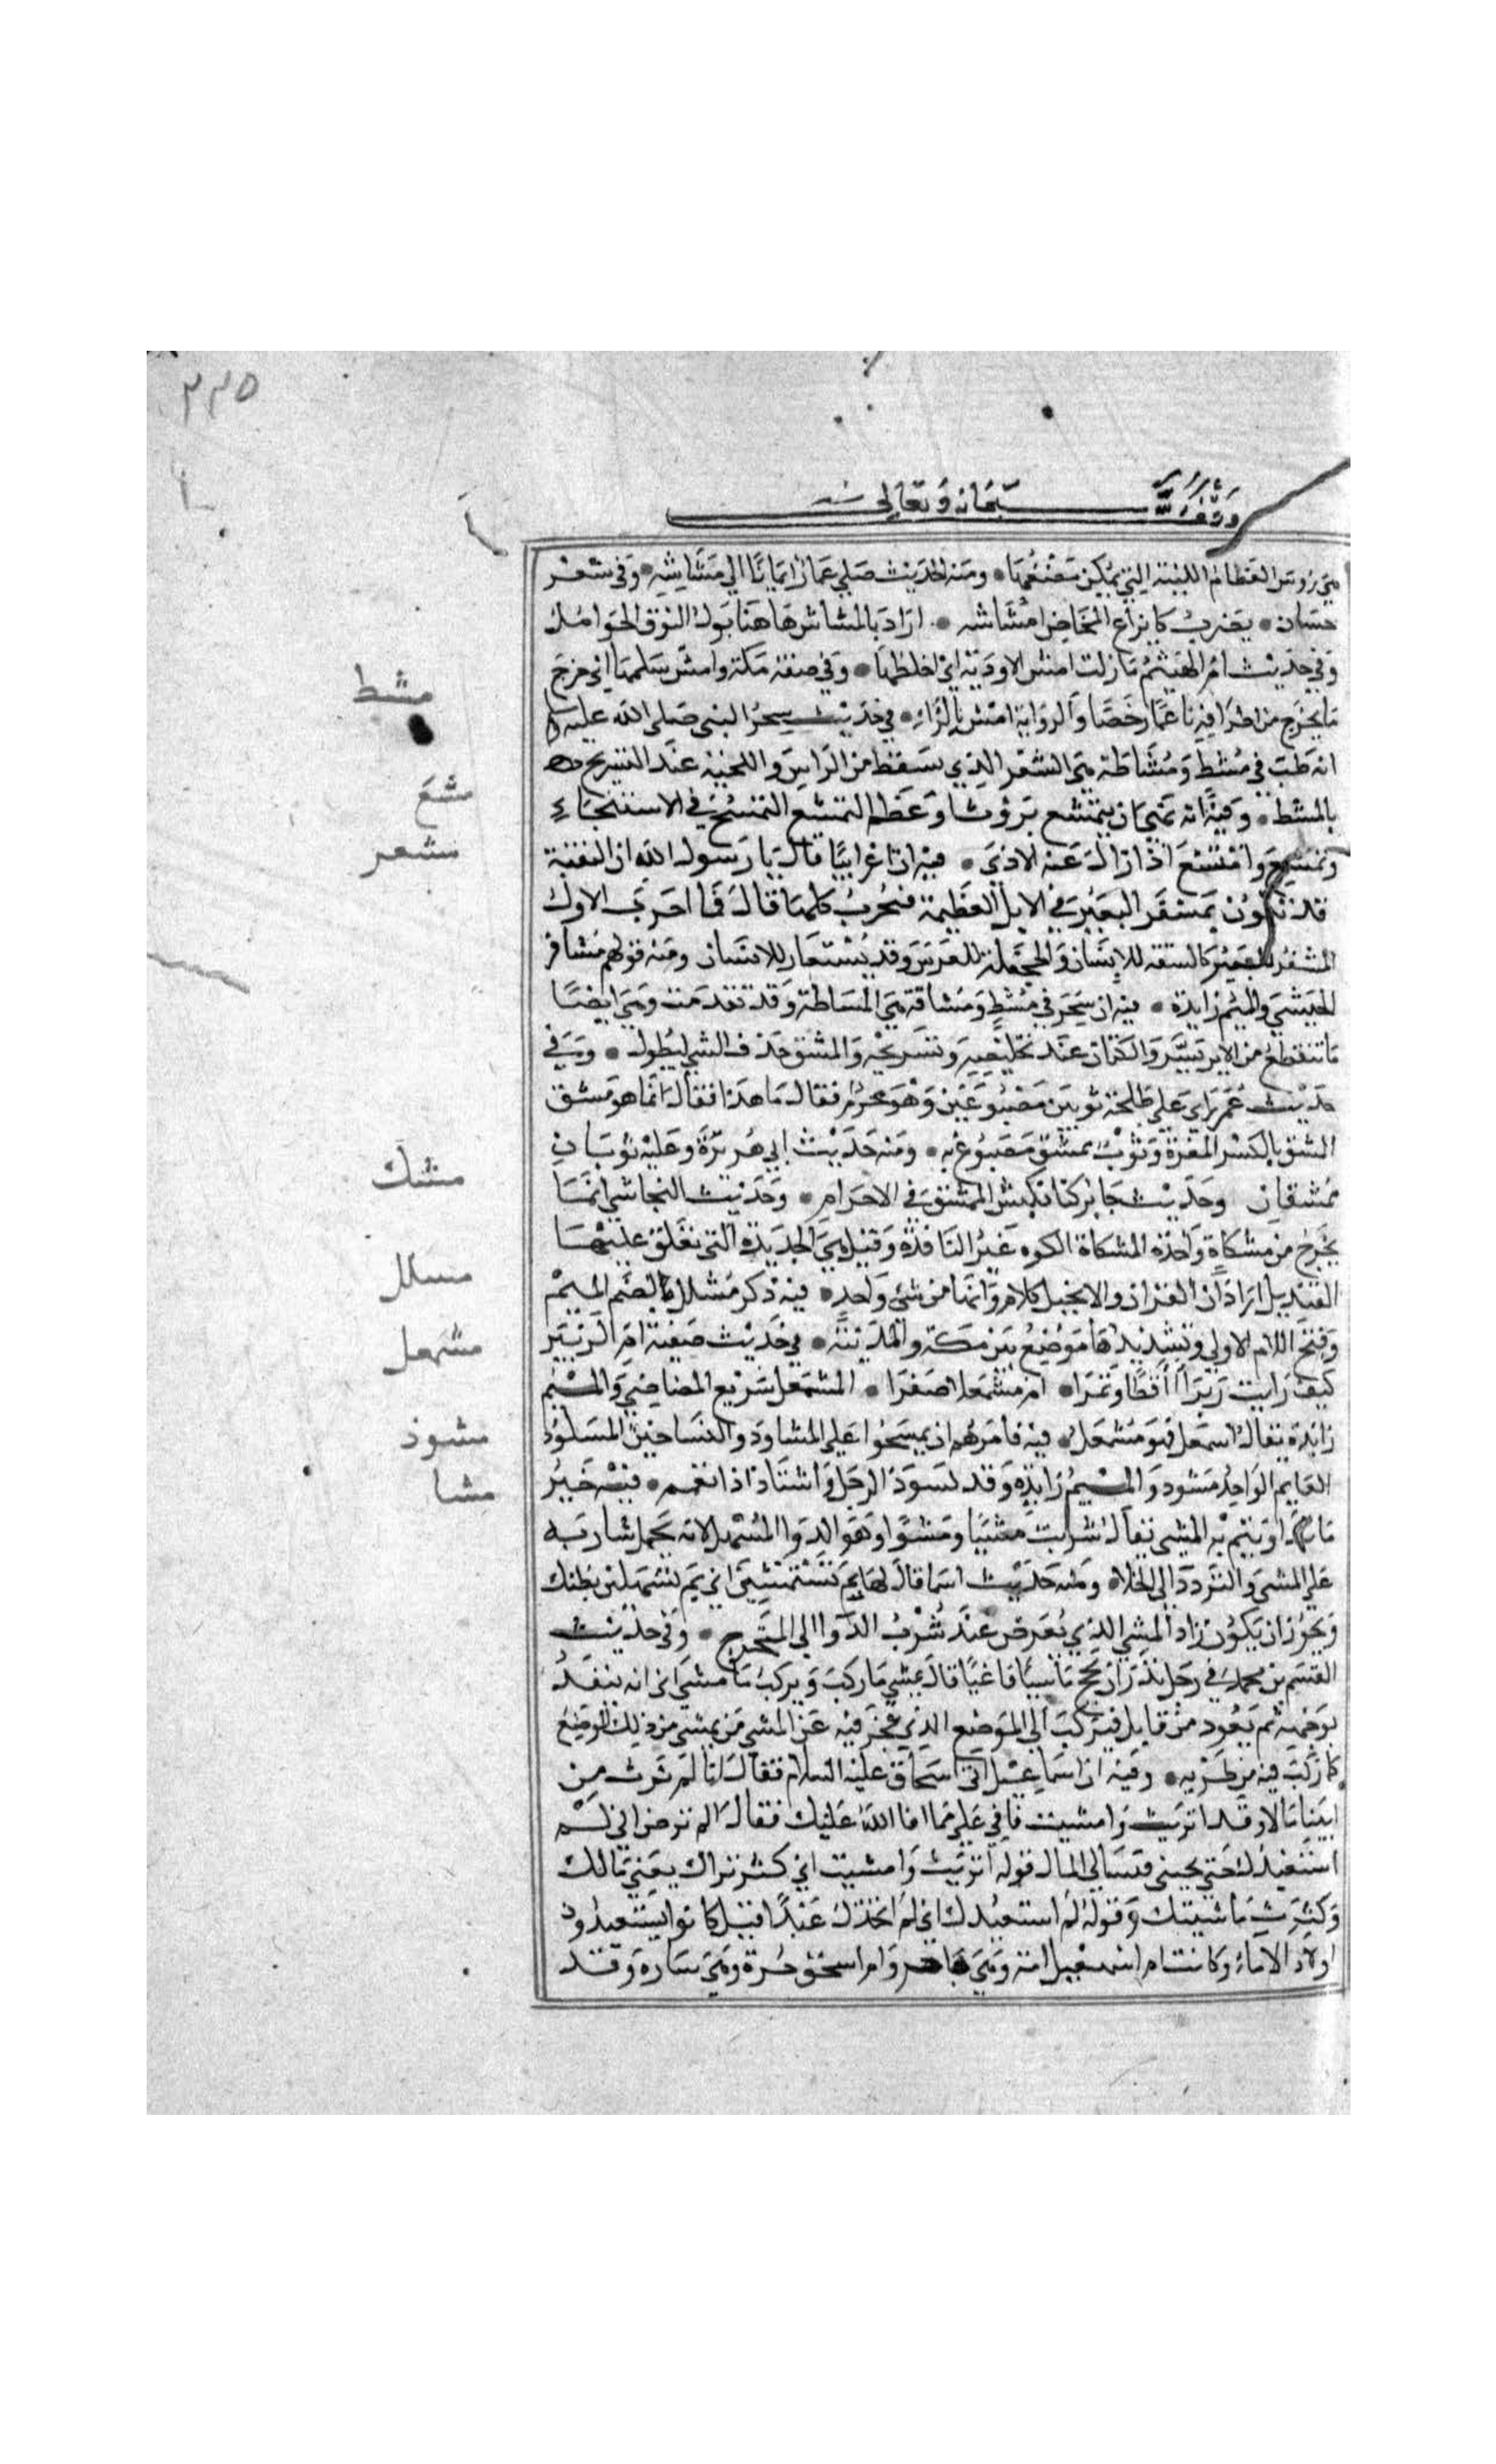 ٢٣٥
وقف لله سبحانه وتعالى
هي رؤس العظام اللينة التي يمكن مضغها ومنه الحديث صلي عمار ايمانا الي مشاشه وفي شعر
حسان يضرب كايزاع المخاض مشاشه اراد بالمشاش هاهنا بول النوق الحوامل
وفي حديث ام الهيثم مازلت امش الاودية اي اخلطها وفي صفة مكة وامش سلمها اي خرج
ما يخرج من اطرافه ناعما رخصا والرواية امشر بالراء في حديث سحر النبي صلى الله عليه
انه طب في مشط ومشاطة هي الشعر الذي يسقط من الراس واللحية عند التسريح
بالمشط وفيه انه نهي ان يتمشع بروث او عظم التمشع التمسح في الاستنجاء
وتمشع وامتشع اذا زال عنه الاذي فيه ان اعرابيا قال يا رسول الله ان النقبة
قد تكون بمشفر البعير في الابل العظيمة فتجرب كلها قال فما اجرب الاول
المشفر للبعير كالشفة للانسان والجحفلة للفرس وقد يستعار للانسان ومنه قولهم مشافر
الحبشي والميم زايدة فيه انه سحر في مشط ومشاقة هي المشاطة وقد تقدمت وهي ايضا
ما تنقطع من الابريسم والكتان عند تخليصه وتسريحه والمشق جذف الشي ليطول وفي
حديث عمر راي علي طلحة ثوبين مصبوغين وهو محرم فقال ما هذا فقال انما هو مشق
المشق بالكسر المغرة وثوب ممشق مصبوغ به ومنه حديث ابي هريرة وعليه ثوبان
ممشقان وحديث جابر كنا نلبس الممشق في الاحرام وحديث النجاشي انما
يخرج من مشكاة واحدة المشكاة الكوه غير النافذة وقيل هي الحديدة التي يعلق عليها
القنديل اراد ان القران والانجيل كلام وانهما من شي واحد فيه ذكر مشلل بالضم الميم
وفتح اللام الاولي وتشديدها موضع بين مكة والمدينة في حديث صفية ام الزبير
كيف رايت زبرا أأقطا وتمرا ام مشمعلا صقرا المشمعل سريع الماضي والميم
زايدة يقال اشمعل فهو مشمعل فيه فامرهم ان يمسحوا علي المشاوذ والتساخين المشاوذ
العمايم الواحد مشوذ والميم زايدة وقد تشوذ الرجل واشتاذ اذا تعمم فيه خير
ما تداويتم به المشي يقال شربت مشيا ومشوا وهو الدوا المسهل لانه يحمل شاربه
علي المشي والتردد الي الخلا ومنه حديث اسما قال لها بم تستمشين اي بم تسهلين بطنك
ويجوز ان يكون اراد المشي الذي يعرض عند شرب الدوا الي المخرج وفي حديث
القسم بن محمد في رجل نذر ان يحج ماشيا فاعيا قال يمشي ما ركب ويركب ما مشي اي انه ينفذ
لوجهه ثم يعود من قابل فيركب الي الموضع الذي عجز فيه عن المشي ثم يمشي من ذلك الموضع
كلما ركب فيه من طريقه وفيه ان اسماعيل اتي اسحاق عليه السلام فقال انا لم نرث من
ابينا مالا وقد اثريت وامشيت فافي علي مما افا الله عليك فقال الم ترض اني لم
استعبدك حتي تجيني فتسالي المال قوله اثريت وامشيت اي كثر ثراك يعني مالك
وكثرت ماشيتك وقوله لم استعبدك اي لم اتخذك عبدا قيل كانوا يستعبدون
اولاد الاماء وكانت ام اسمعيل امة وهي هاجر وام اسحق حرة وهي ساره وقد
مشط
مشع
مشفر
مشك
مشلل
مشمعل
مشوذ
مشا